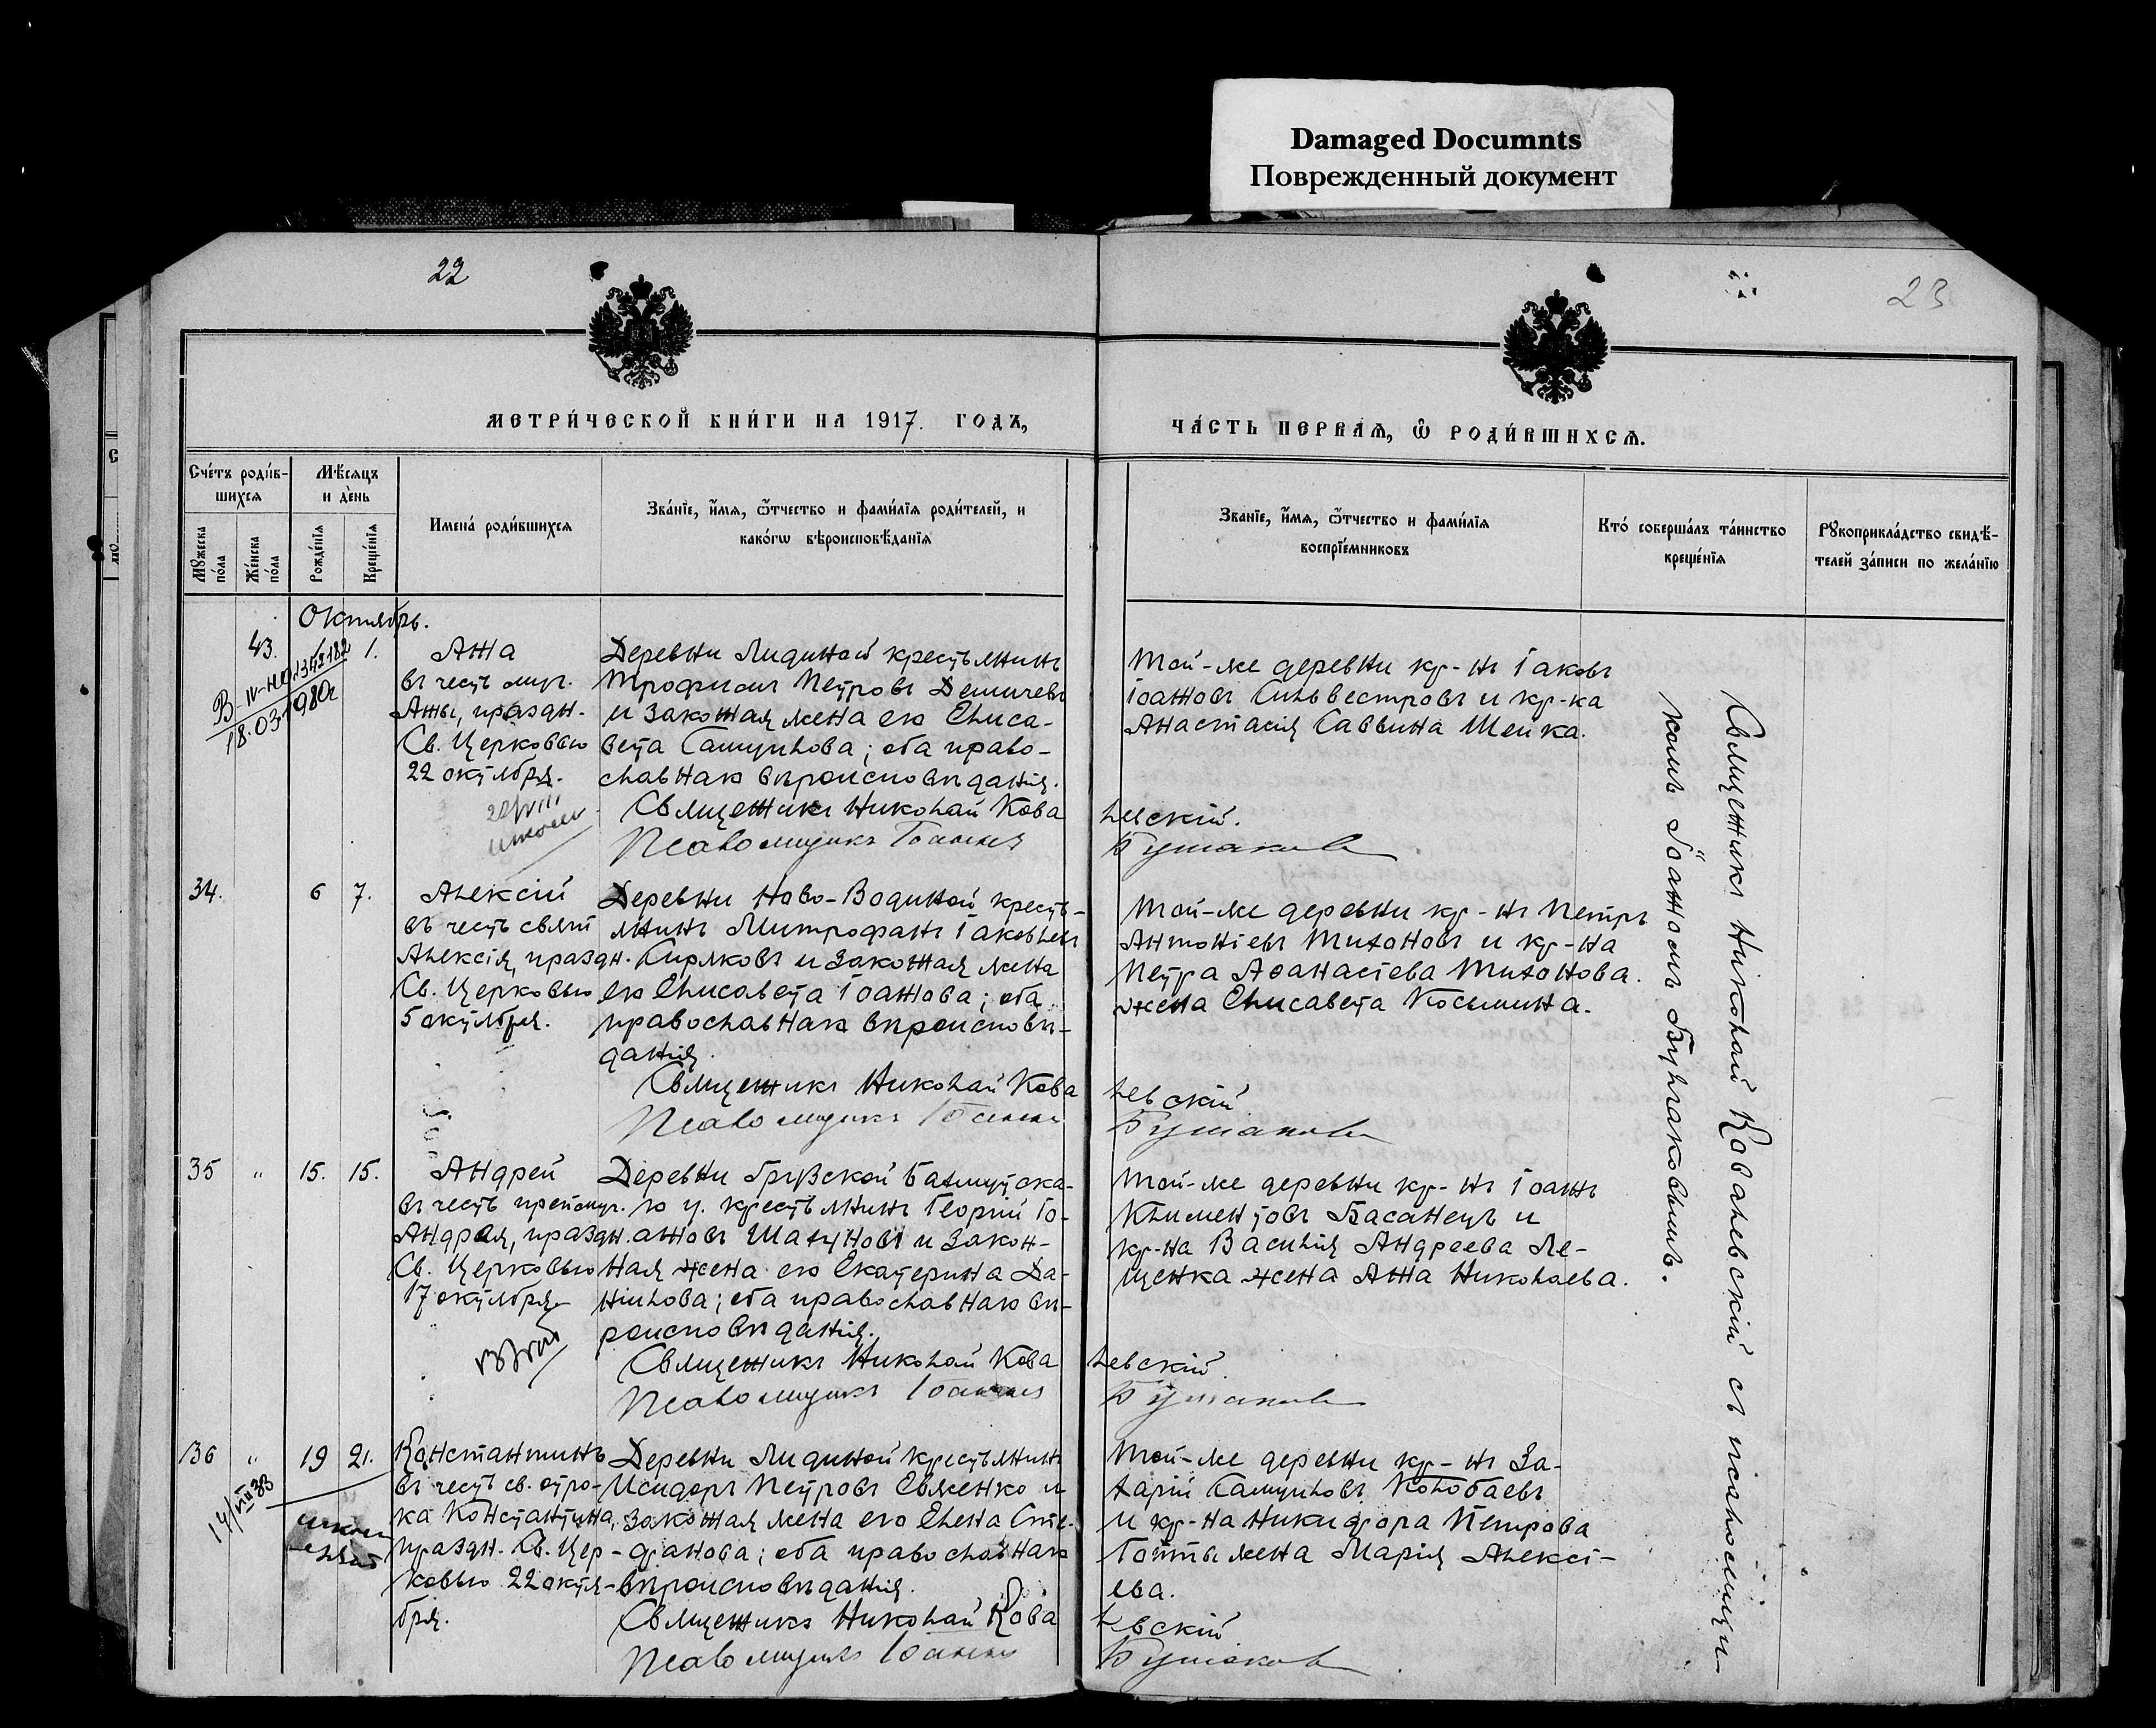 Damaged Documnts
Поврежденный документ
22
23
МЕТРИ́ЧЕСКОЙ КНИ́ГИ НА 1917. ГОДЪ,
ЧА́СТЬ ПЕРВАѦ, Ѽ РОДИ́ВШИХСѦ.
Сче́тъ роди́в-
шихсѧ
Мꙋ́жеска по́ла
Же́нска по́ла
Мѣ́сѧцъ
и де́нь
Рожде́нїѧ
Креще́нїѧ
Имена̀ роди́вшихсѧ
Зва́нїе, и҆́мѧ, ѻ҆́тчество и фами́лїѧ роди́телей, и
како́гѡ вѣроисповѣ́данїѧ
Зва́нїе, и҆́мѧ, ѻ҆́тчество и фами́лїѧ
воспрїе́мниковъ
Кто́ соверша́лъ та́инство
креще́нїѧ
Рꙋкоприкла́дство свидѣ́-
телей за́писи по жела́нїю
Октябрь.
43.
1.
18.03.1980г
Анна
въ честь муч.
Анны, праздн.
Св. Церковью
22 октября.
Деревни Лидиной крестьянинъ
Трофимъ Петровъ Демичевъ
и законная жена его Елиса-
вета Самуилова; оба право-
славнаго вѣроисповѣданія.
Священникъ Николай Кова
левскій.
Псаломщикъ Іоаннъ
Булгаковъ
Той-же деревни кр-нъ Іаковъ
Іоанновъ Сильвестровъ и кр-ка
Анастасія Саввина Шейка.
34.
6
7.
Алексій
въ честь свят
Алексія, праздн.
Св. Церковью
5 октября.
Деревни Ново-Водиной кресть-
янинъ Митрофанъ Іаковлевъ
Сиряковъ и законная жена
его Елисавета Іоаннова; оба
православнаго вѣроисповѣ-
данія.
Священникъ Николай Кова
левскій
Псаломщикъ Іоаннъ
Булгаковъ
Той-же деревни кр-нъ Петръ
Антоніевъ Тихоновъ и кр-на
Петра Аѳанасіева Тихонова.
жена Елисавета Косьмина.
35
"
15.
15.
Андрей
въ честь преп.муч.
Андрея, праздн.
Св. Церковью
17 октября
Деревни Грузской Бахмутска-
го у. крестьянинъ Георгій Іо-
анновъ Шахуновъ и закон-
ная жена его Екатерина Да-
ніилова; оба православнаго вѣ-
роисповѣданія.
Священникъ Николай Кова
левскій
Псаломщикъ Іоаннъ
Булгаковъ
Той-же деревни кр-нъ Іоаннъ
Климентовъ Басанецъ и
кр-на Василія Андреева Ле-
щенка жена Анна Николаева.
36
"
19
21.
Константинъ
въ честь св. отро-
ка Константина,
праздн. Св. Цер-
ковью 22 октя-
бря.
Деревни Лидиной крестьянинъ
Исидоръ Петровъ Евженко и
законная жена его Елена Сте-
фанова; оба православнаго
вѣроисповѣданія.
Священникъ Николай Кова
левскій
Псаломщикъ Іоаннъ
Булгаковъ
Той-же деревни кр-нъ За-
харій Самуиловъ Колобаевъ
и кр-на Никифора Петрова
жена Марія Алексі-
ева.
Священникъ Николай Ковалевскій съ псаломщи-
комъ Іоанномъ Булгаковымъ.